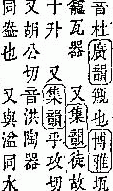 音杜廣韻瓨也博雅瓶
瓦器 又集韻徒故
十升 又集韻乎攻切
又胡公切音洪陶器
同盎也 又與溢同水